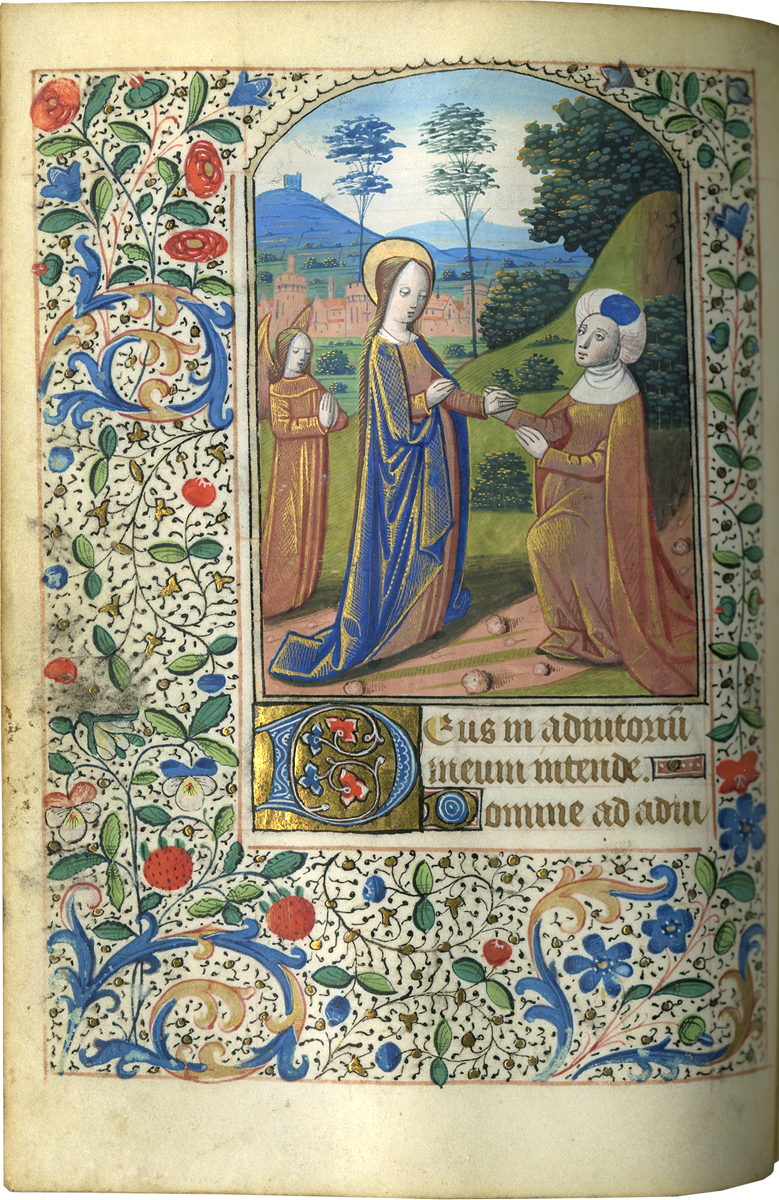 Deus in adiutoriū
meum intende.
Domine ad adiu